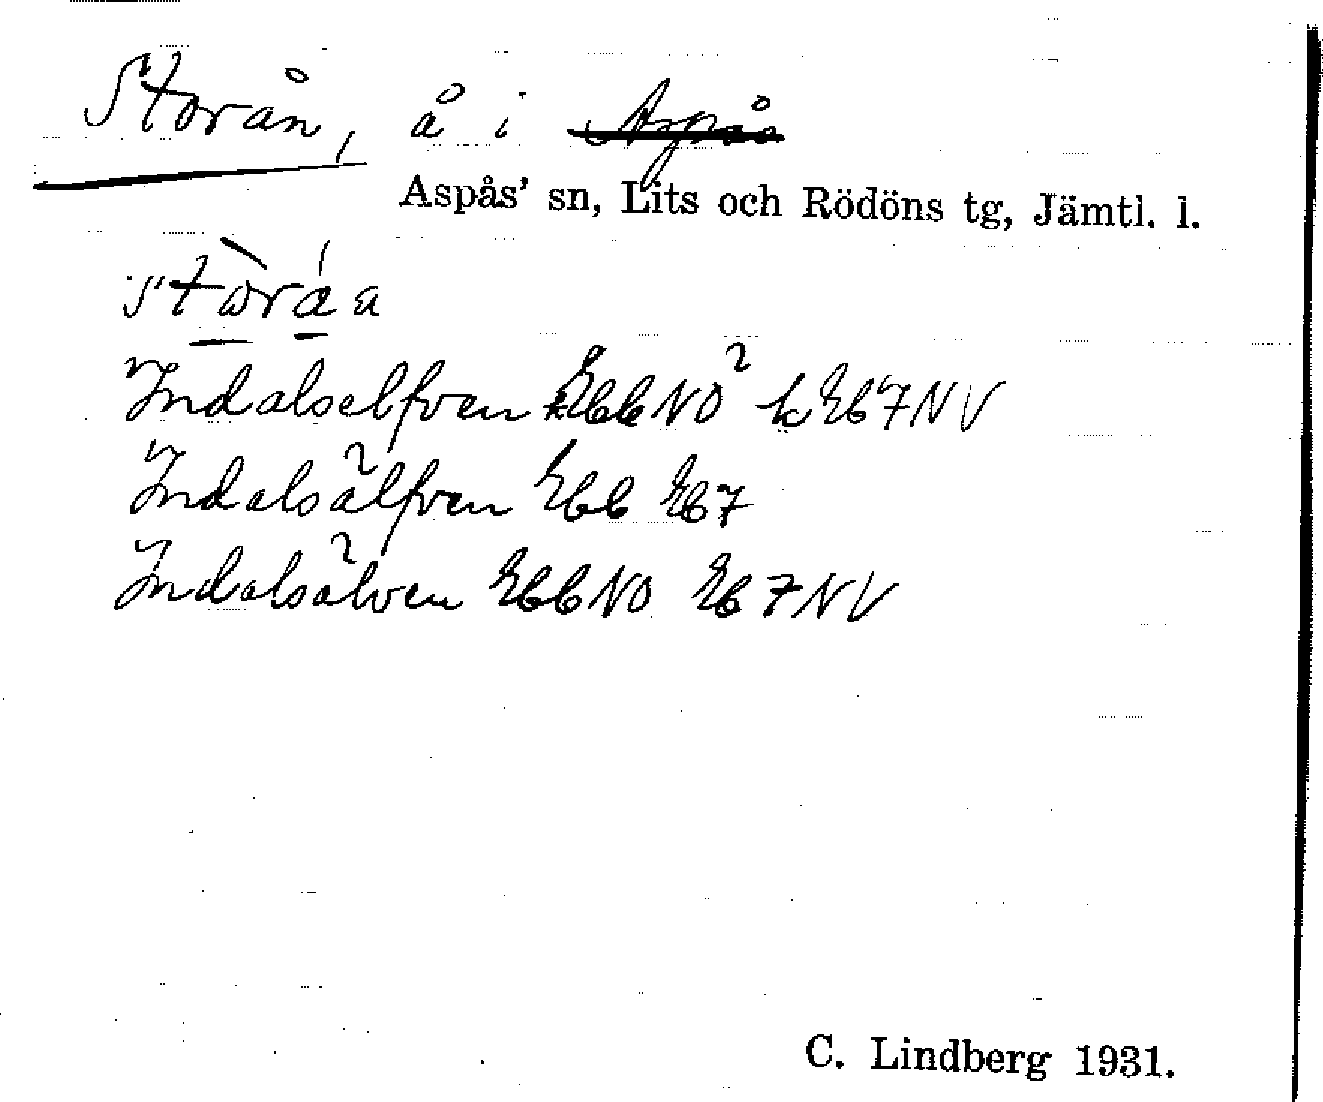 Storån, å i Aspås
Aspås' sn, Lits och Rödöns tg, Jämtl. l.
Indalselfven Eb6NO k Eb7NV
Indalsälfven Eb6 Eb7
Indalsälven Eb6NO Eb7NV
C. Lindberg 1931.